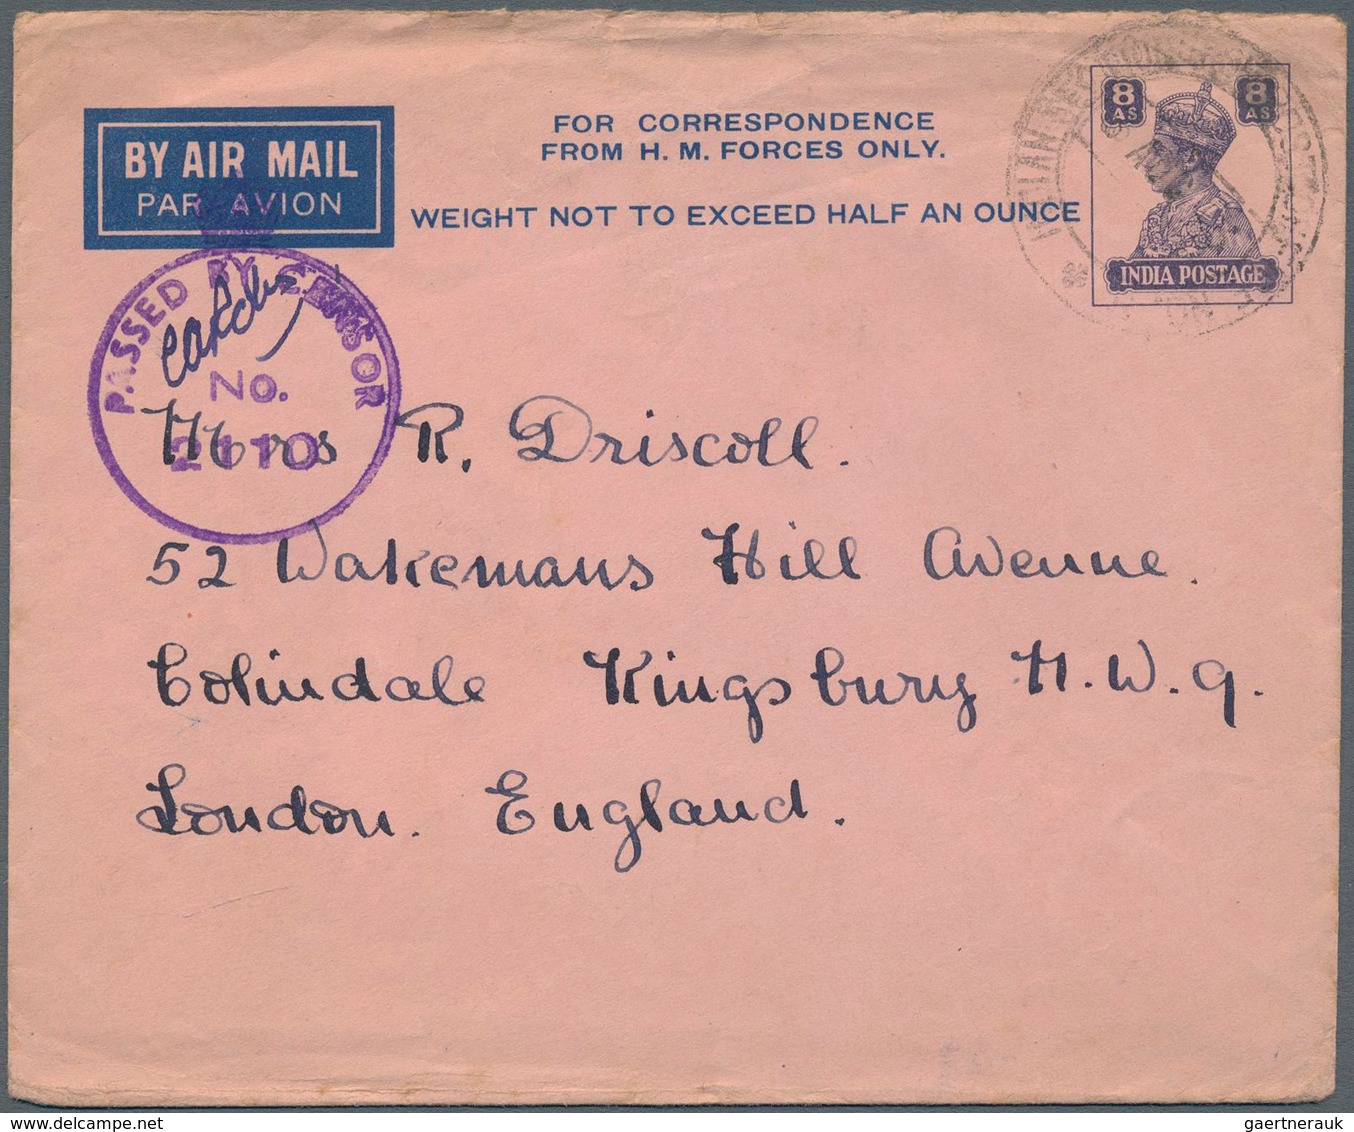 BY AIR MAIL
PAR AVION
FOR CORRESPONDENCE
FROM H. M. FORCES ONLY.
WEIGHT NOT TO EXCEED HALF AN OUNCE
8 AS
8 AS
INDIA POSTAGE
PASSED BY CENSOR
No.
2110
Mrs R. Driscoll.
52 Wakemans Hill Avenue.
Colindale Kingsbury N.W.9.
London. England.
gaertnerauk